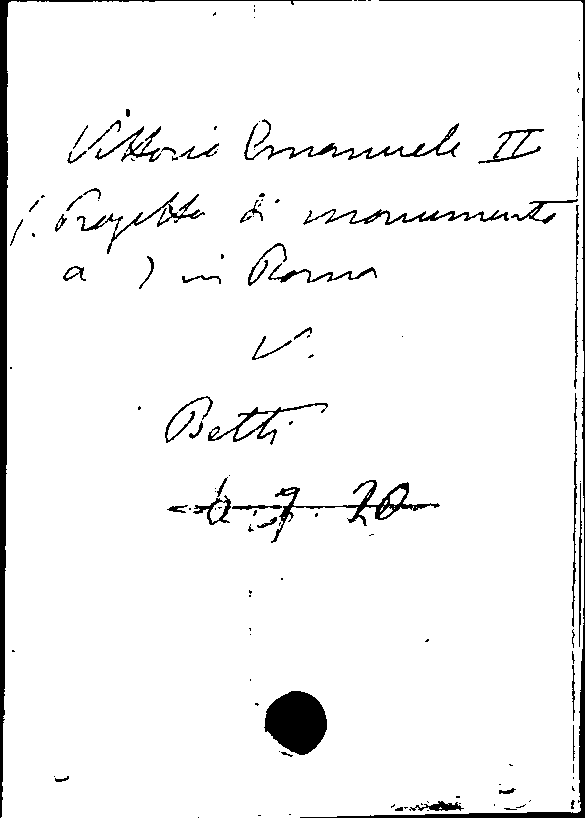 Vittorio Emanuele II
(. Progetto di monumento
a ) in Roma
V.
Betti
6. 9. 20